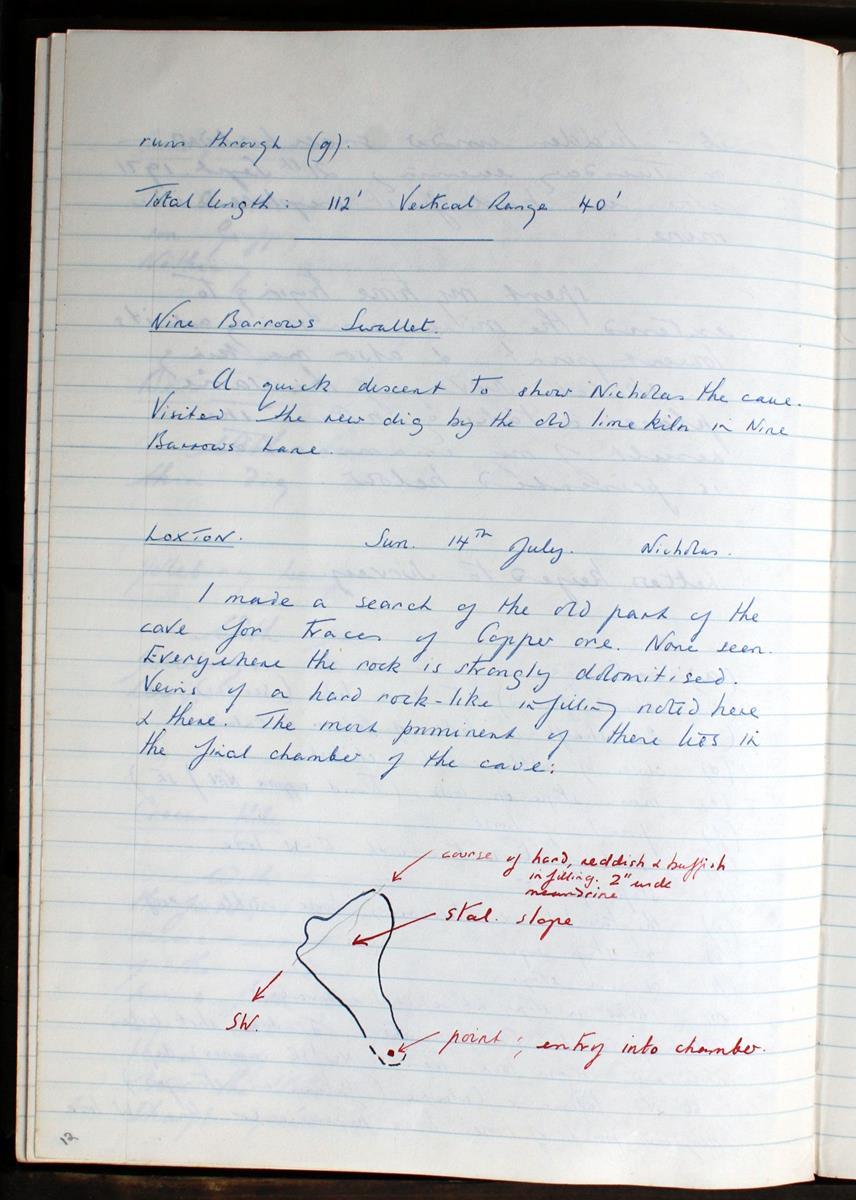 runs through (g).
Total length: 112' Vertical Range 40'
Nine Barrows Swallet.
A quick descent to show Nicholas the cave.
Visited the new dig by the old lime kiln in Nine
Barrows Lane.
LOXTON. Sun. 14th July. Nicholas.
I made a search of the old part of the
cave for traces of Copper ore. None seen.
Everywhere the rock is strongly dolomitised.
Veins of a hard rock-like infilling noted here
& there. The most prominent of these lies in
the final chamber of the cave:
course of hard, reddish & buffish
infilling. 2" wide
stal. slope
SW.
point ; entry into chamber.
12